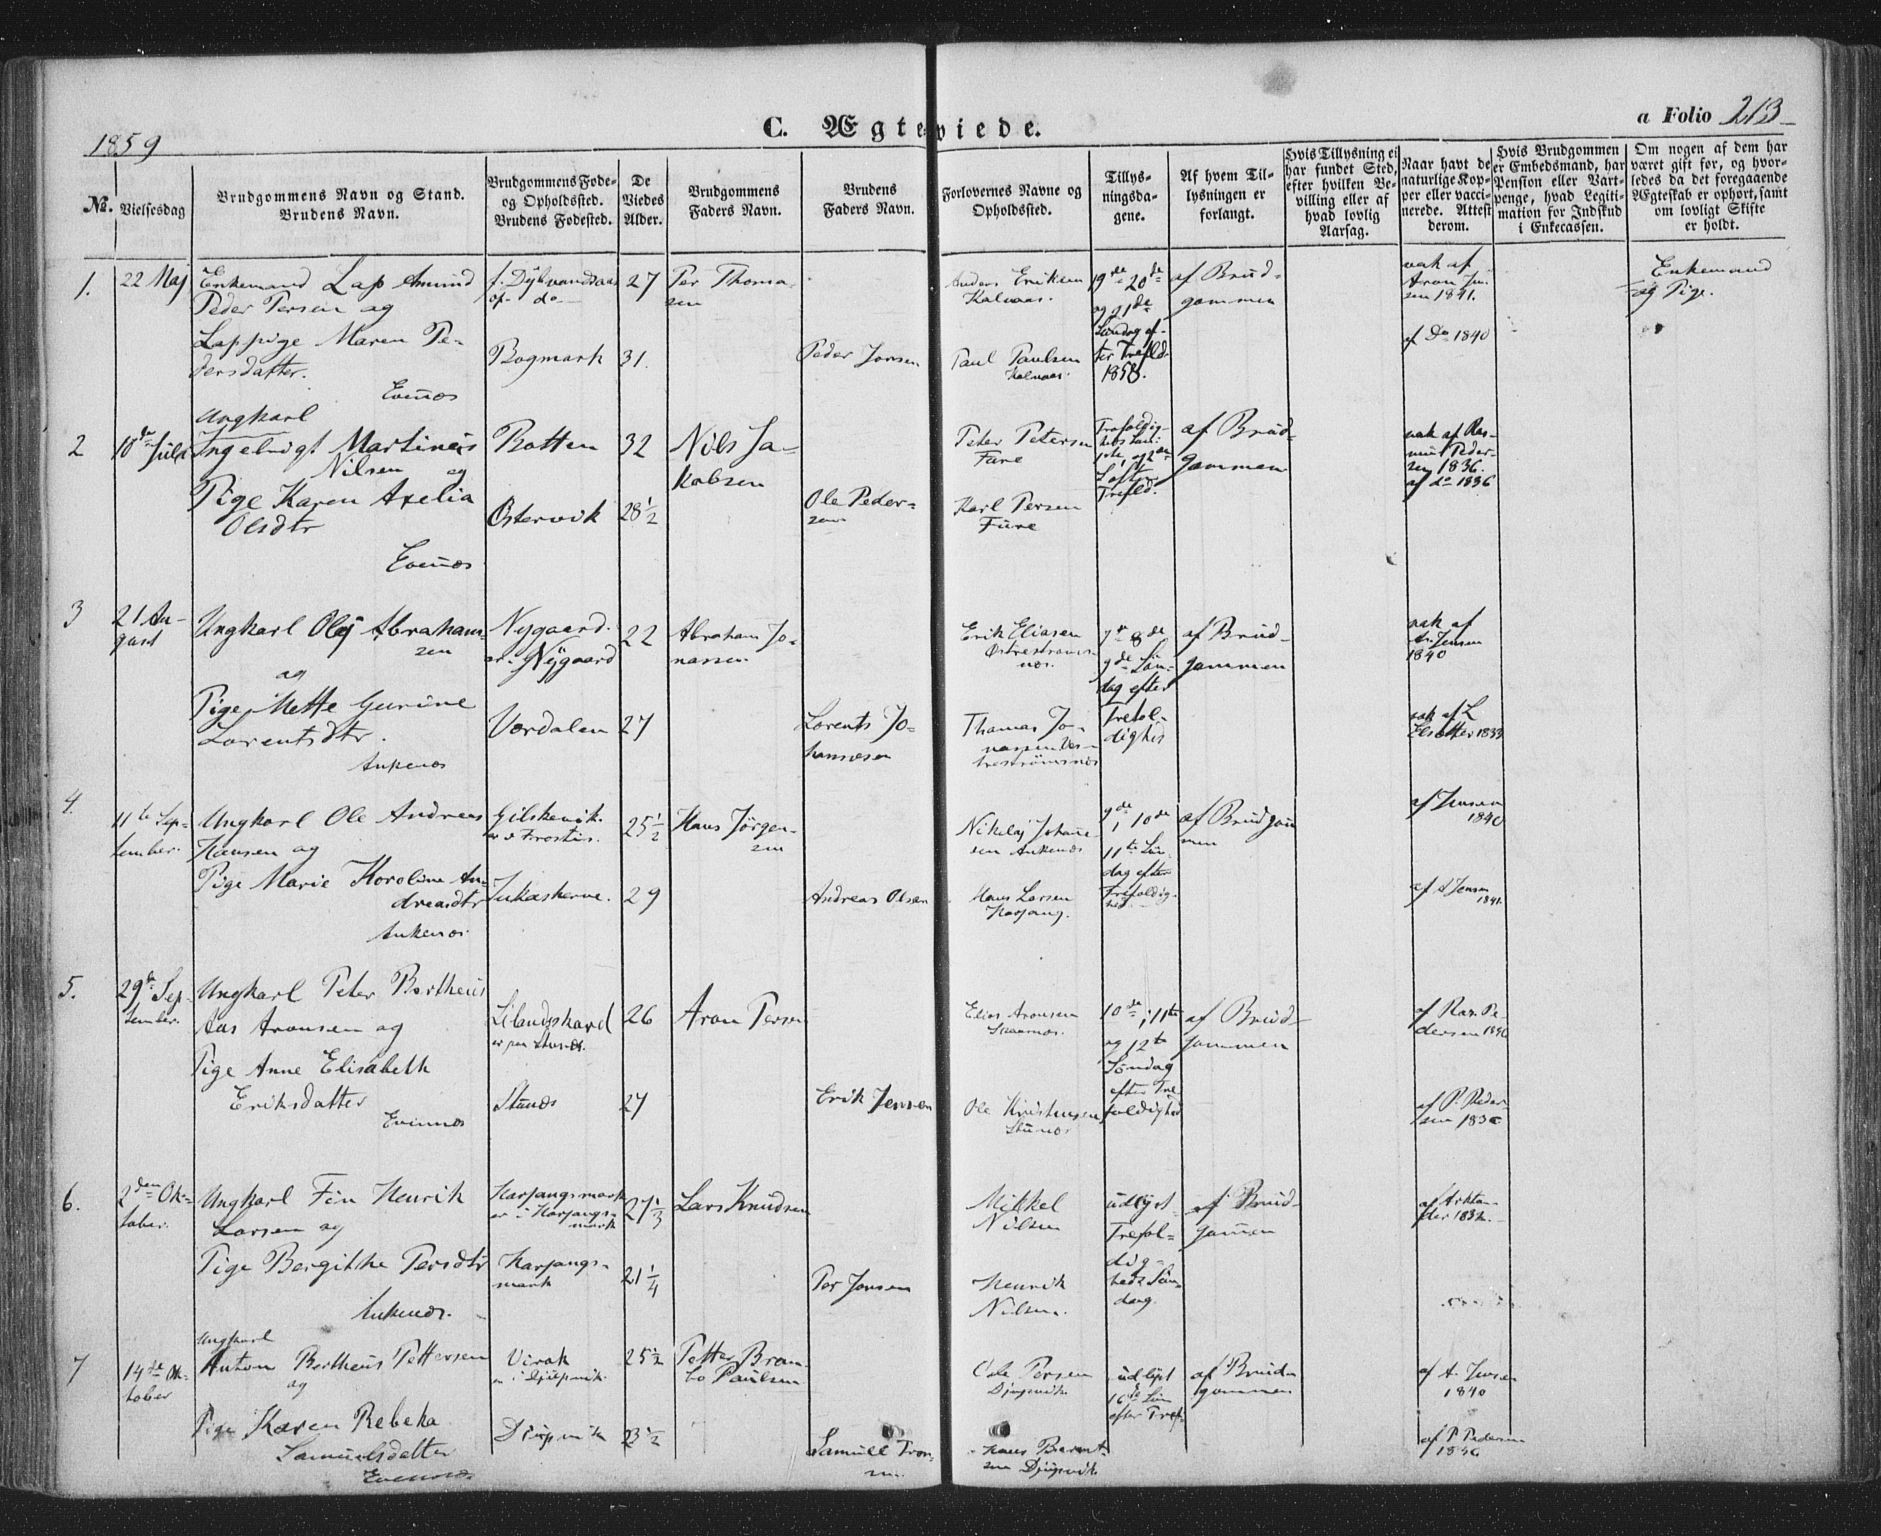 1859
C. Ægteviede.
a Folio 213
No.
Vielsesdag
Brudgommens Navn og Stand.
Brudens Navn.
Brudgommens Føde-
og Opholdssted.
Brudens Fødested.
De
Viedes
Alder.
Brudgommens
Faders Navn.
Brudens
Faders Navn.
Forlovernes Navne og
Opholdssted.
Tillys-
ningsda-
gene.
Af hvem Til-
lysningen er
forlangt.
Hvis Tillysning ei
har fundet Sted,
efter hvilken Be-
villing eller af
hvad lovlig
Aarsag.
Naar havt de
naturlige Kop-
per eller vacci-
nerede. Attest
derom.
Hvis Brudgommen
er Embedsmand, har
Pension eller Vart-
penge, hvad Legiti-
mation for Indskud
i Enkecassen.
Om nogen af dem har
været gift før, og hvor-
ledes da det foregaaende
Ægteskab er ophørt, samt
om lovligt Skifte
er holdt.
1.
22 Maj
Enkemand Lap Amund
Peder Persen og
Lappige Maren Pe-
dersdatter.
Evenæs
Bogmark
27
31.
Per Thoma-
sen
Peder Jonsen
Anders Eriksen
Kalvaas.
Paul Paulsen
Kalvaas.
19de 20de
og 21de
Søndag ef-
ter Trefld.
1858.
af Brud-
gommen
vak af
Aron Jen-
sen 1841.
af Do 1840
Enkemand
og Pige.
2
10de Juli
Ungkarl
Ingebrigt Martinus
Nilsen og
Pige Karen Axelia
Olsdtr
Evenæs
Botten
Østervik
32
28 1/2
Nils Ja-
kobsen
Ole Peder-
sen
Peter Petersen
Fure
Karl Persen
Fure
Trefld.
af Brud-
gommen
vak af Ras-
mus Peder-
sen 1836.
af do 1836
3
21 Au-
gust
Ungkarl Olej Abraham-
sen
og
Pige Mette Gurine
Lorentsdtr.
Ankenæs
Nygaard.
er i Nygaard
Værdalen
22
27
Abraham Jo-
nassen
Lorents Jo-
hannesen
Erik Eliasen
Thomas Jo-
nassen
8de
9de Søn-
dag efter
Trefol-
dighed
af Brud-
gommen
vak af
A. Jensen
1840
vak af L
1833
4.
11te Sep-
tember.
Ungkarl Ole Andreas
Hansen og
Pige Marie Karoline An-
dreasdtr
Ankenæs
25 1/2
29
Hans Jørgen-
sen
Andreas Olsen
Nikolaj Johan-
sen Ankenæs
Hans Larsen
Harjang.
9de, 10de
11te Søn-
dag efter
Trefoldig-
hed.
af Brudgom
men
af Jensen
1840
af A Jensen
1841.
5.
29te Sep-
tember.
Ungkarl Peter Bertheus
Aas Aronsen og
Pige Anne Elisabeth
Eriksdatter
Evenæs
Lilandskard
er paa Stunæs.
Stunæs
26
27
Aron Persen
Erik Jensen
Elias Aronsen
Ole Kristensen
Stunæs
10de, 11te
og 12te
Søndag
efter Tre
foldighed
af Brud-
gommen
af Ras. Pe-
dersen 1836
af P. Peder-
sen 1836
6.
2den Ok-
tober.
Ungkarl Fin Henrik
Larsen og
Pige Bergithe Persdtr
Ankenæs.
Harjangsmark
er i Harjangs-
mark
Harjangs-
mark
27 1/3
21 1/4
Lars Knudsen
Per Jonsen
Mikkel
Nilsen
Henrik
Nilsen.
udlyst
Trefol-
dig-
heds Søn-
dag.
af Brud-
gommen
1832.
7
14de Ok-
tober
Ungkarl
Anton Bertheus Pettersen
og
Pige Karen Rebeka
Samuelsdatter
Evenæs
Virak
er i Djupvik.
Djupvik
25 1/2
23 1/2
Petter Bram
bo Paulsen
Samuel Tron-
sen
Ole Persen
Djupvik
Hans Bernt-
sen Djupvik
udlyst
16de Søn
efter Tref.
af Brud-
gommen
af A. Jensen
1840
af P. Pedersen
1836